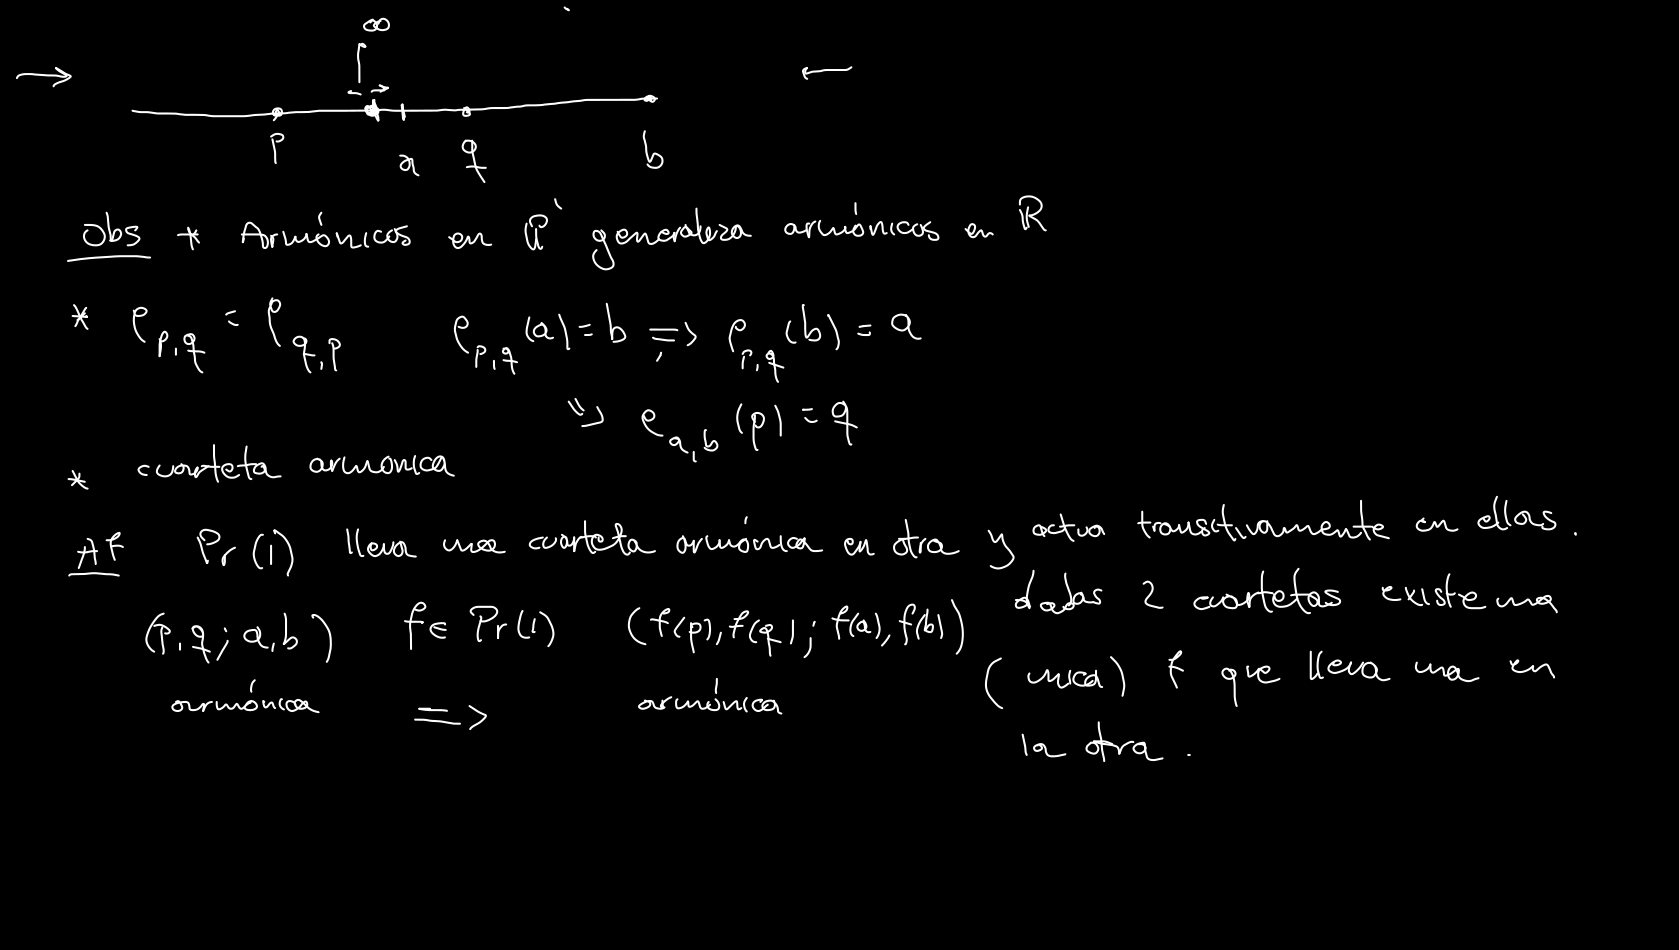 ∞
p a q b
Obs * Armónicos en P¹ generaliza armónicos en ℝ
* ρ_{p,q} = ρ_{q,p} ρ_{p,q}(a) = b => ρ_{p,q}(b) = a
=> ρ_{a,b}(p) = q
* cuarteta armonica
Af Pr(1) lleva una cuarteta armónica en otra y actua transitivamente en ellas.
(p,q; a,b) f ∈ Pr(1) (f(p), f(q); f(a), f(b))
armónica => armónica
dadas 2 cuartetas existe una
(unica) f que lleva una en
la otra.